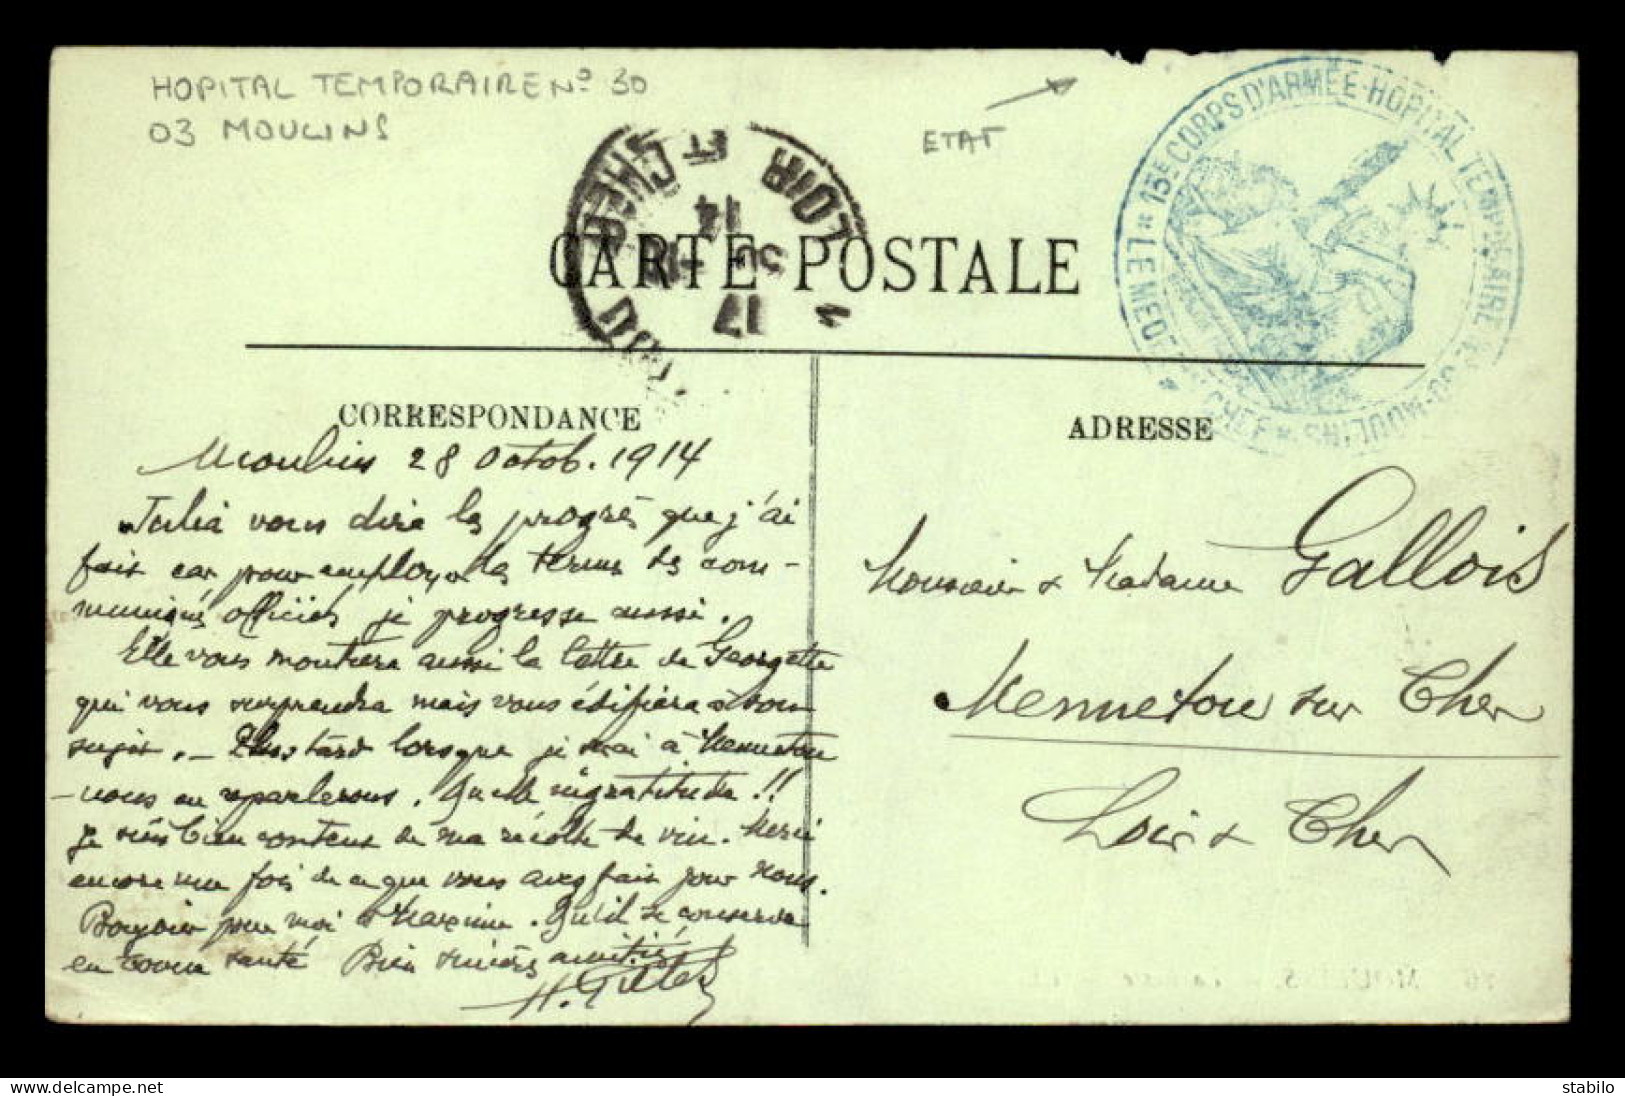 HOPITAL TEMPORAIRE Nº 30
03 MOULINS
ETAT
LOIR ET CHER
17
30
14
* LE MEDECIN CHEF * 15E CORPS D'ARMÉE-HOPITAL TEMPORAIRE N° 30-MOULINS
CARTE POSTALE
CORRESPONDANCE
Moulins 28 Octob. 1914
Julia vous dira les progrès que j'ai
fait car pour employer les termes des com-
muniqués officiels je progresse aussi.
Elle vous montrera aussi la lettre de Georgette
qui vous surprendra mais vous édifiera à son
sujet. — Plus tard lorsque je serai à Mennetou
nous en reparlerons. Quelle ingratitude !!
Je suis bien content de ma récolte de vin. Merci
encore une fois de ce que vous avez fait pour nous.
Bonjour pour moi à Maxime. Qu'il se conserve
en bonne santé Bien sincères amitiés
ADRESSE
Monsieur & Madame Gallois
Mennetou sur Cher
Loir & Cher
26 MOULINS
stabilo